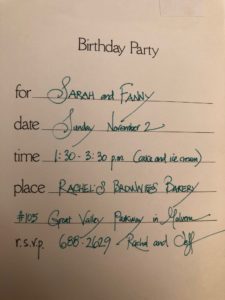 Birthday Party
for Sarah and Fanny
date Sunday November 2
time 1:30 - 3:30 p.m. (cake and ice cream)
place Rachel's Brownies Bakery
#105 Great Valley Parkway in Malvern
r.s.v.p. 688-2629 Rachel and Jeff